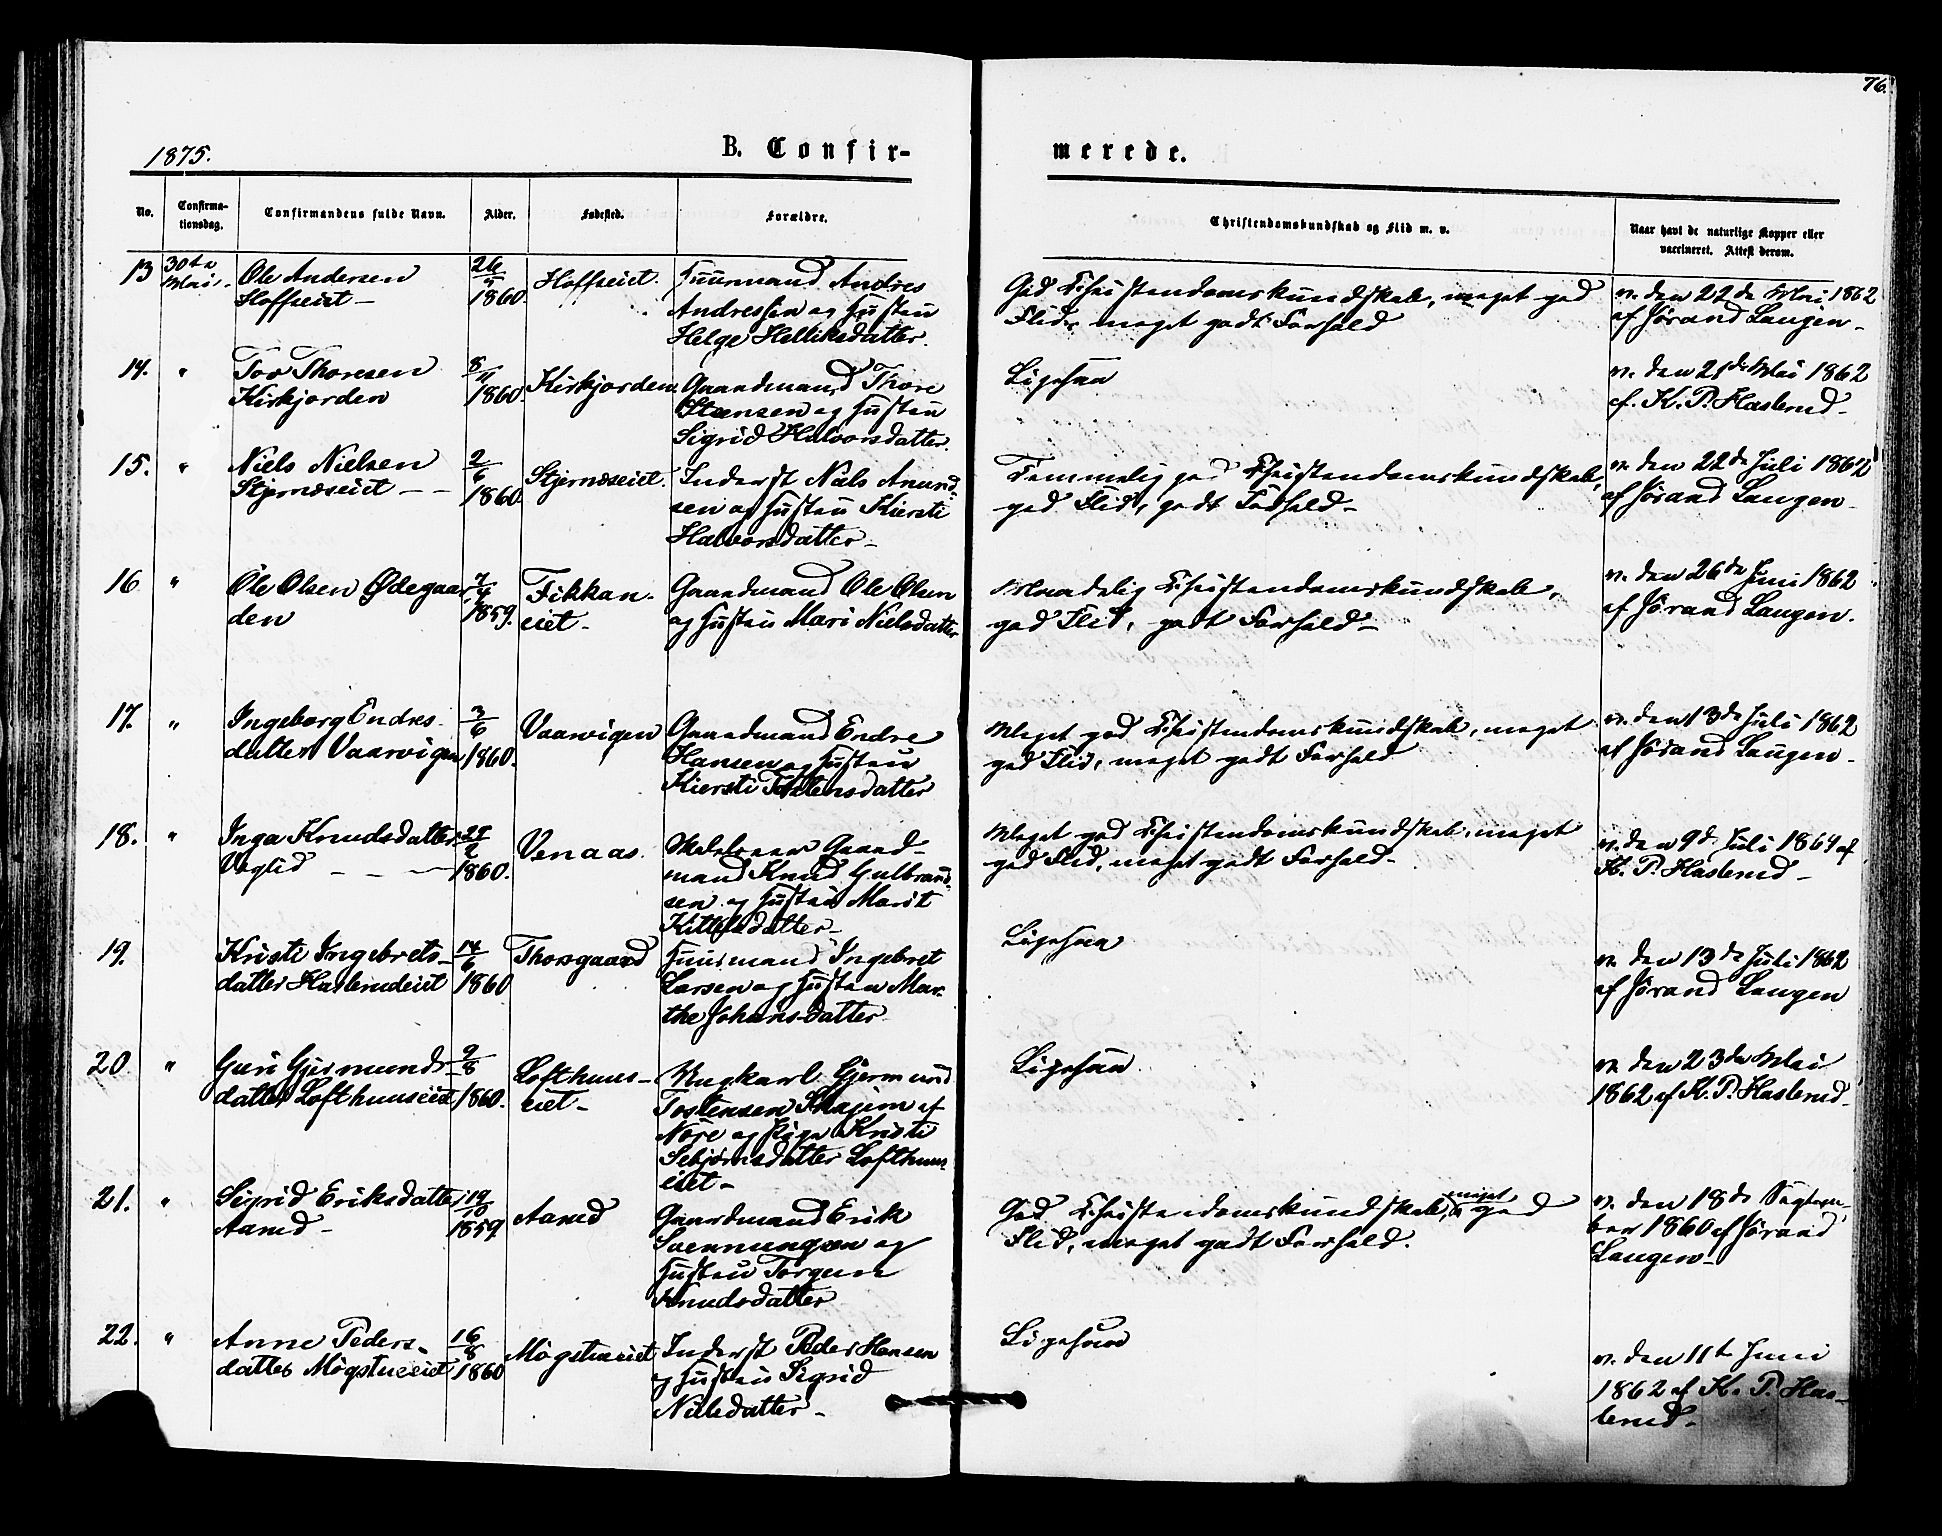 76.
1875.
B. Confir-
merede.
No.
Confirma-
tionsdag.
Confirmandens fulde Navn.
Alder.
Fødested.
Forældre.
Christendomskundskab og Flid m. v.
Naar havt de naturlige Kopper eller
vaccineret. Attest derom.
13 30te Mai. Ole Andersen
Hoffseiet -
26/5 1860.
Hoffseiet.
Huusmand Andres
Andressen og Hustru
Helge Helliksdatter.
God Christendomskundskab, meget god
Flid, meget godt Forhold
v. den 22de Mai 1862
af Jørand Laugen -
14. " Tov Thoresen
Kirkjorden
8/11 1860.
Kirkjorden.
Gaardmand Thore
Steensen og Hustru
Sigrid Halvorsdatter.
Ligesaa
v. den 21de Mai 1862
af K. P. Haslerud -
15. " Niels Nielsen
Stjernæseiet - -
2/6 1860
Stjernæseiet.
Inderst Niels Amund-
sen og Hustru Kiersti
Halvorsdatter -
Temmelig god Christendomskundskab,
god Flid, godt Forhold -
v. den 22de Juli 1862
af Jørand Laugen -
16 " Ole Olsen Ødegaar-
den
1859.
Fikkan-
eiet -
Gaardmand Ole Olsen
og Hustru Mari Nielsdatter
Maadelig Christendomskundskab,
god Flid, godt Forhold -
v. den 26de Juni 1862
af Jørand Laugen.
17. " Ingeborg Endres-
datter Vaarvigen
3/6 1860.
Vaarvigen
Gaardmand Endre
Hansen og Hustru
Kiersti Tostensdatter
Meget god Christendomskundskab, meget
god Flid, meget godt Forhold
v. den 13de Juli 1862
af Jørand Laugen -
18. " Inga Knudsdatter
Veglid - - -
1860.
Venaas.
Gaard-
mand Knud Gulbrand-
sen og Hustru Marit
Kittilsdatter -
Meget god Christendomskundskab, meget
god Flid, meget godt Forhold -
v. den 9de Juli 1864 af
K. P. Haslerud -
19. " Kristi Ingebrets-
datter Haslerudeiet
14/6 1860
Thorsgaard
Huusmand Ingebret
Larsen og Hustru Mar-
the Johansdatter
Ligesaa
v. den 13de Juli 1862
af Jørand Laugen
20. " Guri Gjermunds-
datter Lofthuuseiet
9/8 1860.
Lofthuus-
eiet -
Ungkarl Gjermund
Tostensen Skajem af
Nore og Pige Kristi
Sebjørnsdatter Lofthuus-
eiet -
Ligesaa
v. den 23de Mai
1862 af K. P. Haslerud -
21. " Sigrid Eriksdatter
Aasrud -
19/10 1859
Aasrud
Gaardmand Erik
Svennungsen og
Hustru Torgun
Knudsdatter
God Christendomskundskab, meget god
Flid, meget godt Forhold.
v. den 18de Septem-
ber 1860 af Jørand
Laugen -
22. " Anne Peders-
datter Mogstueeiet
16/8 1860
Mogstueeiet
Inderst Peder Hansen
og Hustru Sigrid
Nielsdatter -
Ligesaa
v. den 11te Juni
1862 af K. P. Has-
lerud -